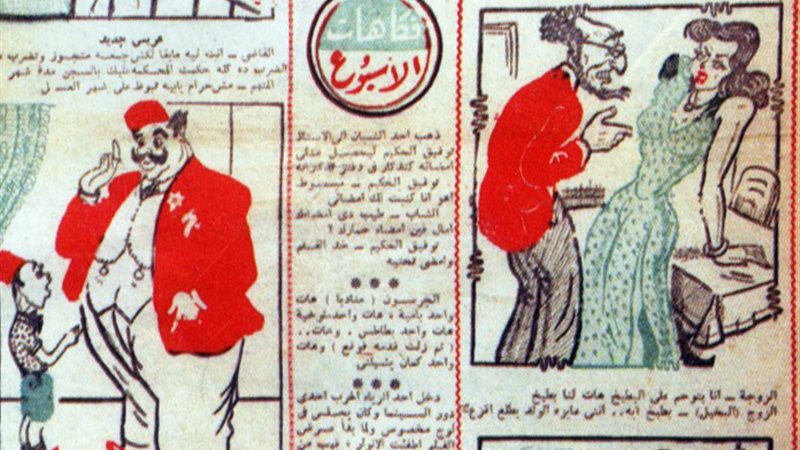 عريس جديد
القاضى — انت ليه مابقا لكش جمعه متجوز وتضرب
الضرب ده كله حكمت المحكمه عليك بالسجن مدة شهر
المتهم — مش حرام يابيه فبوظ على شهر العسل
فكاهات
الأسبوع
ذهب احد الشبان الى الاستاذ
توفيق الحكيم ليحصل على
امضائه كتذكار فى دفتر
توفيق الحكيم — مبسوط
اهو انا كتبت لك امضائى
الشاب — طيب دى امضاءك
امال فين امضاء حمارك ؟
توفيق الحكيم — خد القلم
وامضى تحتيه
***
الجرسون ( مناديا ) هات
واحد بامية ، هات واحد ملوخية
هات واحد بطاطس ، وهات..
( ثم زلت قدمه فوقع ) وهات
واحد كمان يشيلنى
***
دخل احد اثرياء الحرب احدى
دور السينما وكان يجلس فى
لوج مخصوص ولما بدأ عرض
الفيلم اطفئت الانوار ، فهب من
الزوجة — انا بتوحم على البطيخ هات لنا بطيخ
الزوج (البخيل) — بطيخ ايه.. انتى عايزه الولد يطلع اقرع؟